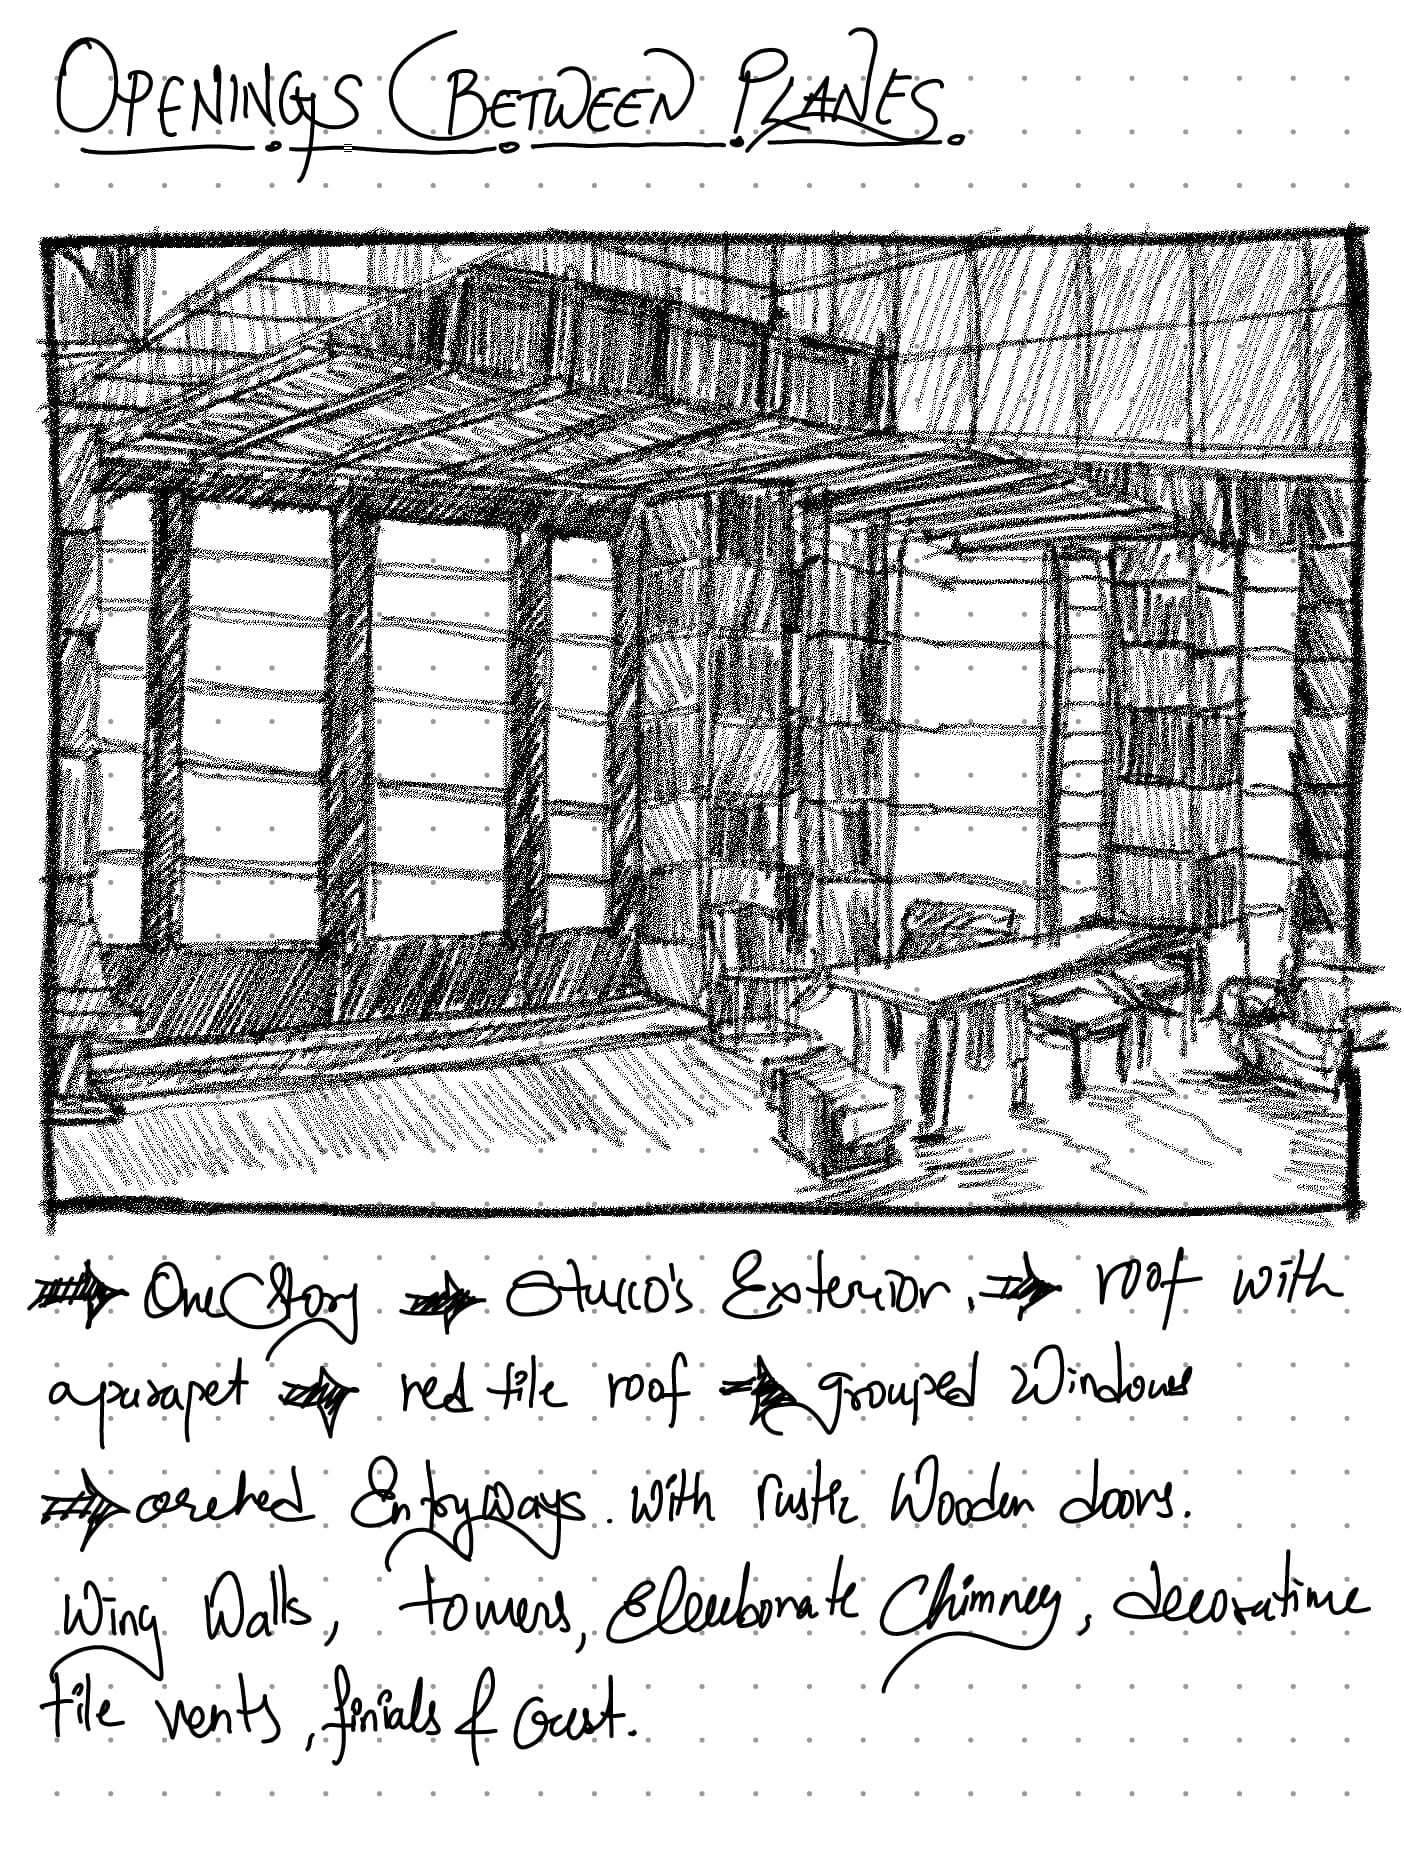 OPENINGS BETWEEN PLANES.
⇒ One Story ⇒ Stucco's Exterior. ⇒ roof with
a parapet ⇒ red tile roof ⇒ grouped windows
⇒ arched Entryways. with rustic Wooden doors.
Wing Walls, towers, Eleborate Chimney, decorative
tile vents, finials &